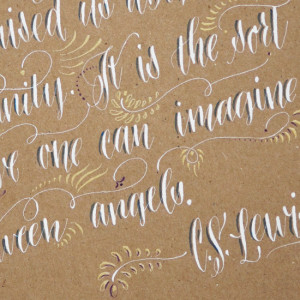 aised us
anity. It is the sort
ve one can imagine
ween angels.
C.S. Lewis